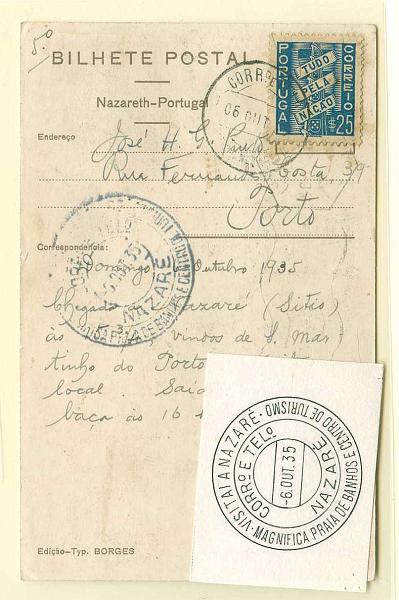 5.º
BILHETE POSTAL
Nazareth-Portugal
PORTUGAL
CORREIO
TUDO
PELA
NAÇÃO
$25
CORRº E
06 OUT
Endereço
José H. G. Pinto
Rua Fernandes Costa, 39
Porto
Correspondencia:
Domingo Outubro 1935
Chegada a Nazaré (Sitio)
às vindos de S. Mar
tinho do Porto
local. Saí
baça às 16
CORRº E TELº
35
NAZARÉ
PRAIA DE BANHOS E CENTRO DE TURISMO
VISITAI A NAZARÉ · MAGNIFICA PRAIA DE BANHOS E CENTRO DE TURISMO
CORRº E TELº
-6.OUT.35
NAZARÉ
Edição-Typ. BORGES